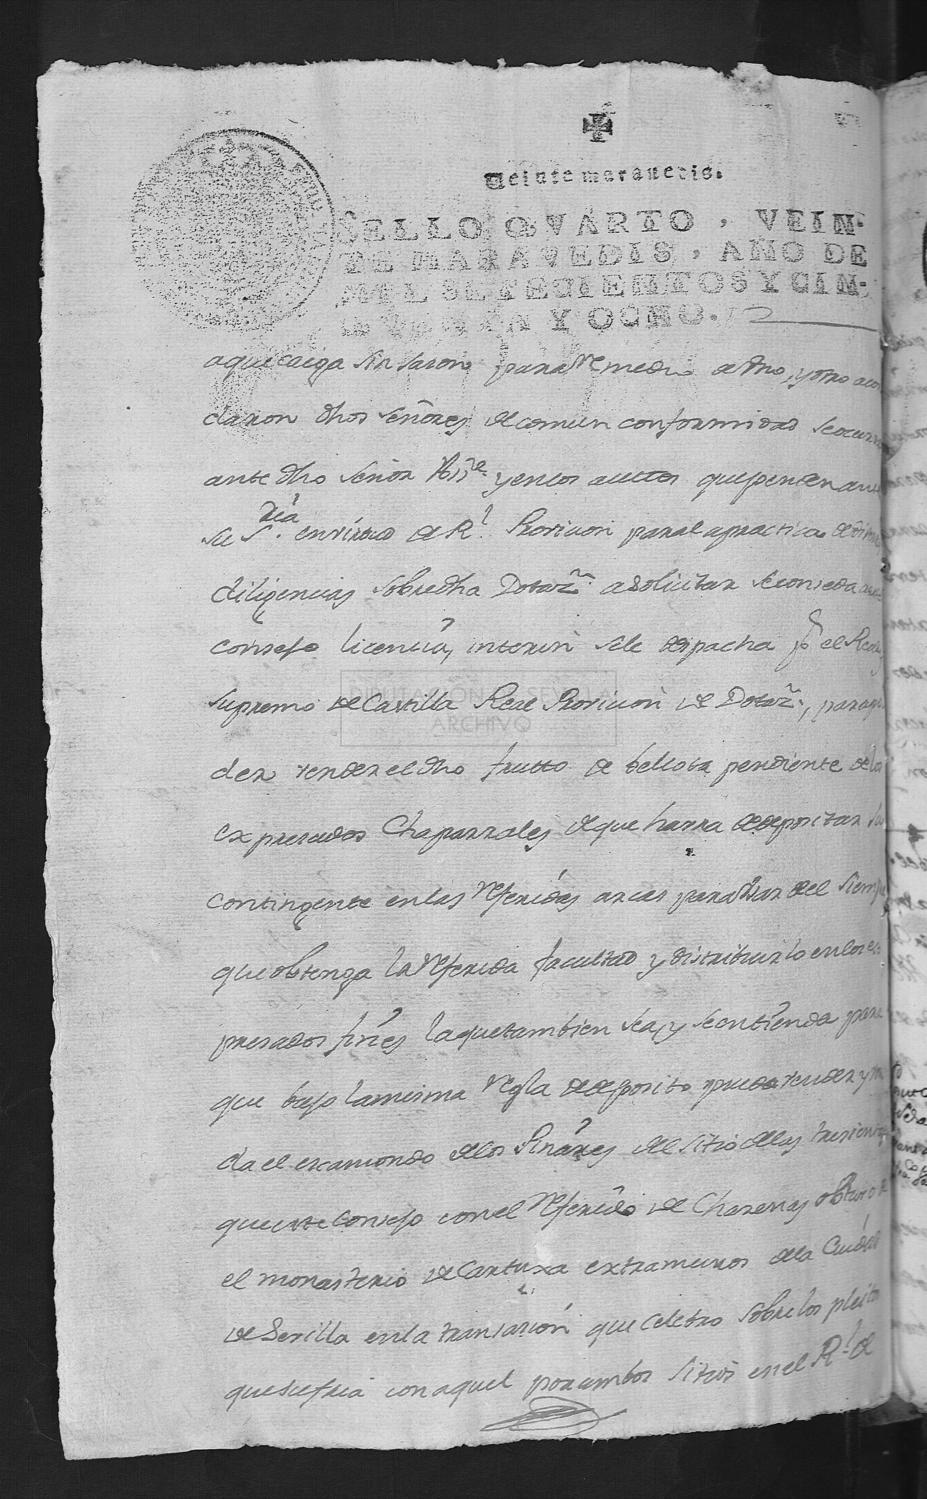 Veinte maravedis.
SELLO QVARTO, VEIN-
TE MARAVEDIS, AÑO DE
MIL SETECIENTOS Y CIN-
QVENTA Y OCHO.
aque caiga sin sazon, para
daron dhos señores de comun conformidad se
ante dho señor Asste y en los auttos que penden
su Sria en virtud de Rl Provicion para la practica de
diligencias sobre dha Dotazn a solicitar se conseda a
consejo licencia, interin se le despacha pr el
supremo de Castilla Real Provicion de Dotazn, para
der vender el dho frutto de bellota pendiente de los
expresados Chaparrales de que harra de depositar su
contingente en las referidas arcas para Usar del siempre
que obtenga la referida facultad y distribuirlo en los ex
presados fines la que tambien sea, y se entienda para
que bajo la misma regla de deposito pueda vender
da el escamondo de los Pinares del sitio de las
que este consejo con el referido de Chazenas obtuvo
el monasterio de Cartuxa extramuros de la Ciudad
de Sevilla en la transasion que celebro sobre los pleitos
que seguia con aquel por ambos sitios en el Rl de
DIPUTACIÓN DE SEVILLA
ARCHIVO